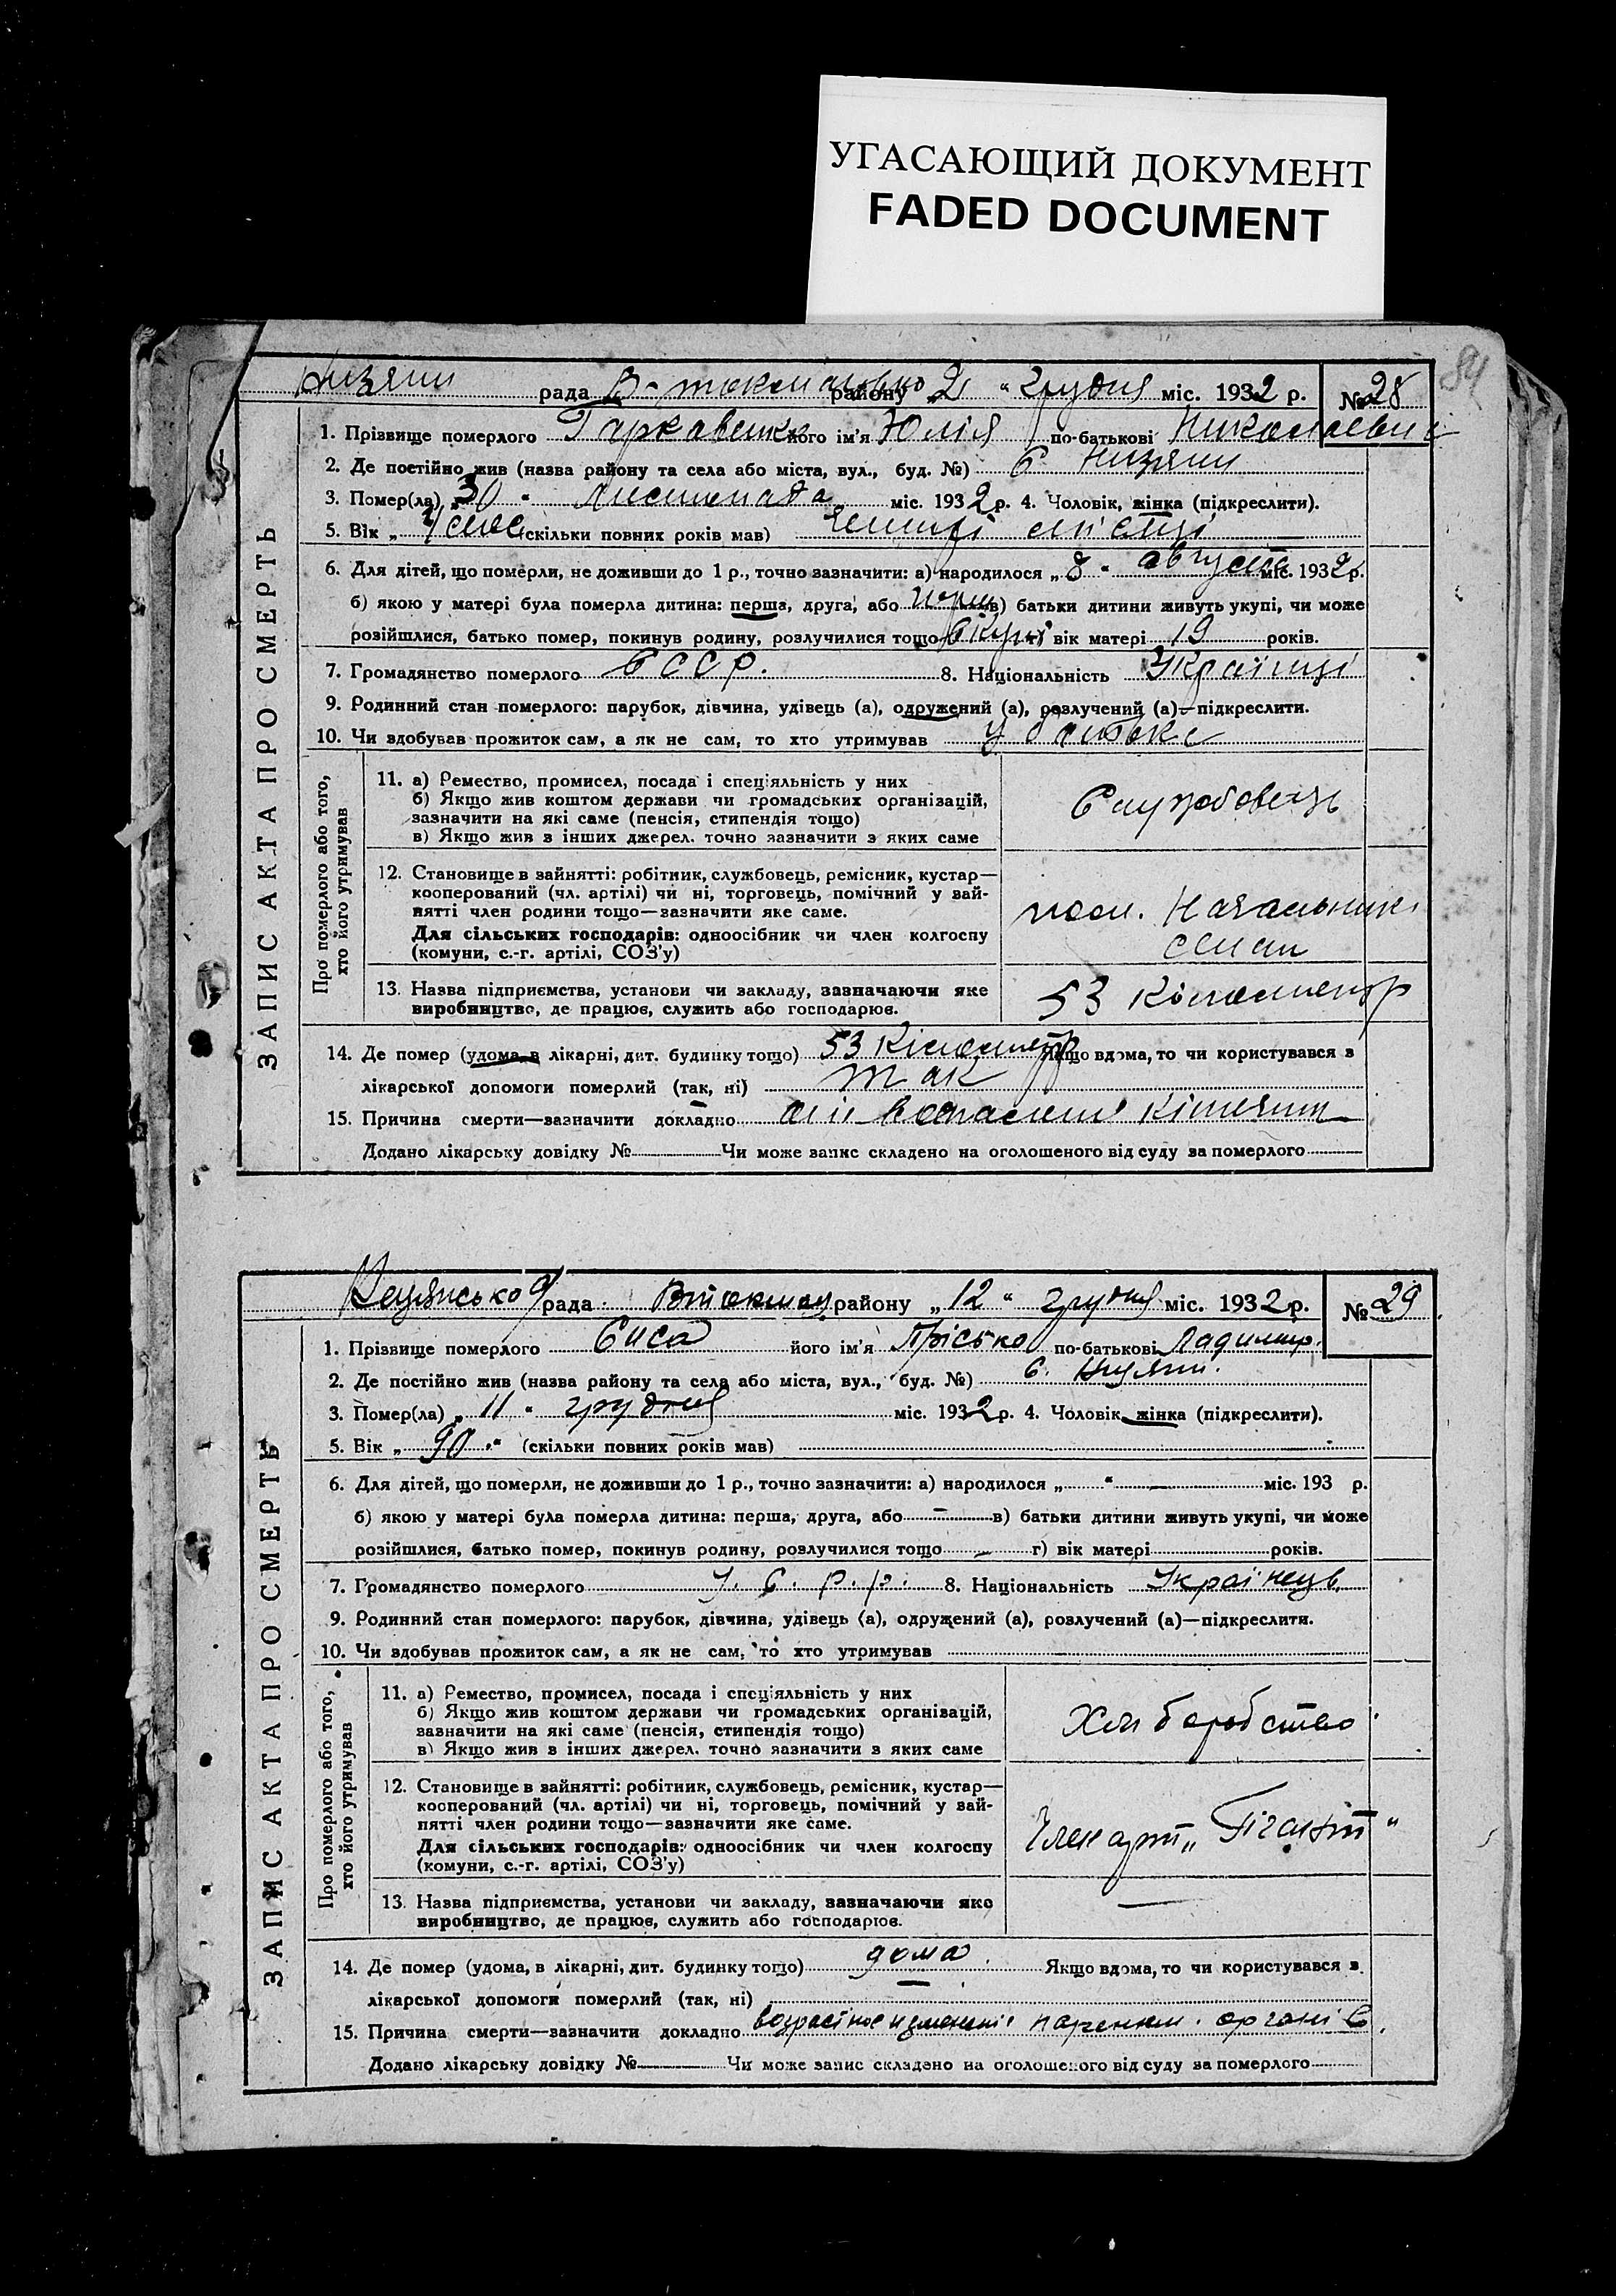 УГАСАЮЩИЙ ДОКУМЕНТ
FADED DOCUMENT
84
Низяни рада В-токмацького району 2 " грудня міс. 1932 р. № 28
ЗАПИС АКТА ПРО СМЕРТЬ
1. Прізвище померлого Гаркавенко його ім'я Юлія по-батькові Николаевна
2. Де постійно жив (назва району та села або міста, вул., буд. №) С. Низяни
3. Помер(ла) „30 " листопада міс. 1932 р. 4. Чоловік, жінка (підкреслити).
5. Вік „ 4 (скільки повних років мав) чотирі місяці
6. Для дітей, що померли, не доживши до 1 р., точно зазначити: а) народилося „8 " августа міс. 1932 р.
б) якою у матері була померла дитина: перша, друга, або перш в) батьки дитини живуть укупі, чи може
розійшлися, батько помер, покинув родину, розлучилися тощо вкупі г) вік матері 19 років.
7. Громадянство померлого СССР. 8. Національність Українці
9. Родинний стан померлого: парубок, дівчина, удівець (а), одружений (а), розлучений (а)—підкреслити.
10. Чи здобував прожиток сам, а як не сам, то хто утримував у батька
Про померлого або того, хто його утримував
11. а) Ремество, промисел, посада і спеціяльність у них
б) Якщо жив коштом держави чи громадських організацій,
зазначити на які саме (пенсія, стипендія тощо)
в) Якщо жив з інших джерел. точно зазначити з яких саме
Службовець
12. Становище в зайнятті: робітник, службовець, ремісник, кустар—
кооперований (чл. артілі) чи ні, торговець, помічний у зай-
нятті член родини тощо—зазначити яке саме.
Для сільських господарів: одноосібник чи член колгоспу
(комуни, с.-г. артілі, СОЗ'у)
пом. Начальника
стан
13. Назва підприємства, установи чи закладу, зазначаючи яке
виробництво, де працює, служить або господарює.
53 Кілометр
14. Де помер (удома, в лікарні, дит. будинку тощо) 53 Кілометр Якщо вдома, то чи користувався з
лікарської допомоги померлий (так, ні) так
15. Причина смерти—зазначити докладно воспаление кішечни
Додано лікарську довідку № Чи може запис складено на оголошеного від суду за померлого
рада. Втокмац району „12 " грудня міс. 1932 р. № 29
ЗАПИС АКТА ПРО СМЕРТЬ
1. Прізвище померлого Сиса його ім'я Прісько по-батькові Ладимир.
2. Де постійно жив (назва району та села або міста, вул., буд. №) с. Низяни.
3. Помер(ла) „ 11 " грудня міс. 1932 р. 4. Чоловік, жінка (підкреслити).
5. Вік „ 90 " (скільки повних років мав)
6. Для дітей, що померли, не доживши до 1 р., точно зазначити: а) народилося „ " — міс. 193 р.
б) якою у матері була померла дитина: перша, друга, або — в) батьки дитини живуть укупі, чи може
розійшлися, батько помер, покинув родину, розлучилися тощо — г) вік матері років.
7. Громадянство померлого У. С. Р. Р. 8. Національність Українець
9. Родинний стан померлого: парубок, дівчина, удівець (а), одружений (а), розлучений (а)—підкреслити.
10. Чи здобував прожиток сам, а як не сам, то хто утримував
Про померлого або того, хто його утримував
11. а) Ремество, промисел, посада і спеціяльність у них
б) Якщо жив коштом держави чи громадських організацій,
зазначити на які саме (пенсія, стипендія тощо)
в) Якщо жив з інших джерел. точно зазначити з яких саме
Хліборобство
12. Становище в зайнятті: робітник, службовець, ремісник, кустар—
кооперований (чл. артілі) чи ні, торговець, помічний у зай-
нятті член родини тощо—зазначити яке саме.
Для сільських господарів: одноосібник чи член колгоспу
(комуни, с.-г. артілі, СОЗ'у)
Член арт „Гігант"
13. Назва підприємства, установи чи закладу, зазначаючи яке
виробництво, де працює, служить або господарює.
—
14. Де помер (удома, в лікарні, дит. будинку тощо) дома. Якщо вдома, то чи користувався з
лікарської допомоги померлий (так, ні) —
15. Причина смерти—зазначити докладно паренхим. органів.
Додано лікарську довідку № Чи може запис складено на оголошеного від суду за померлого